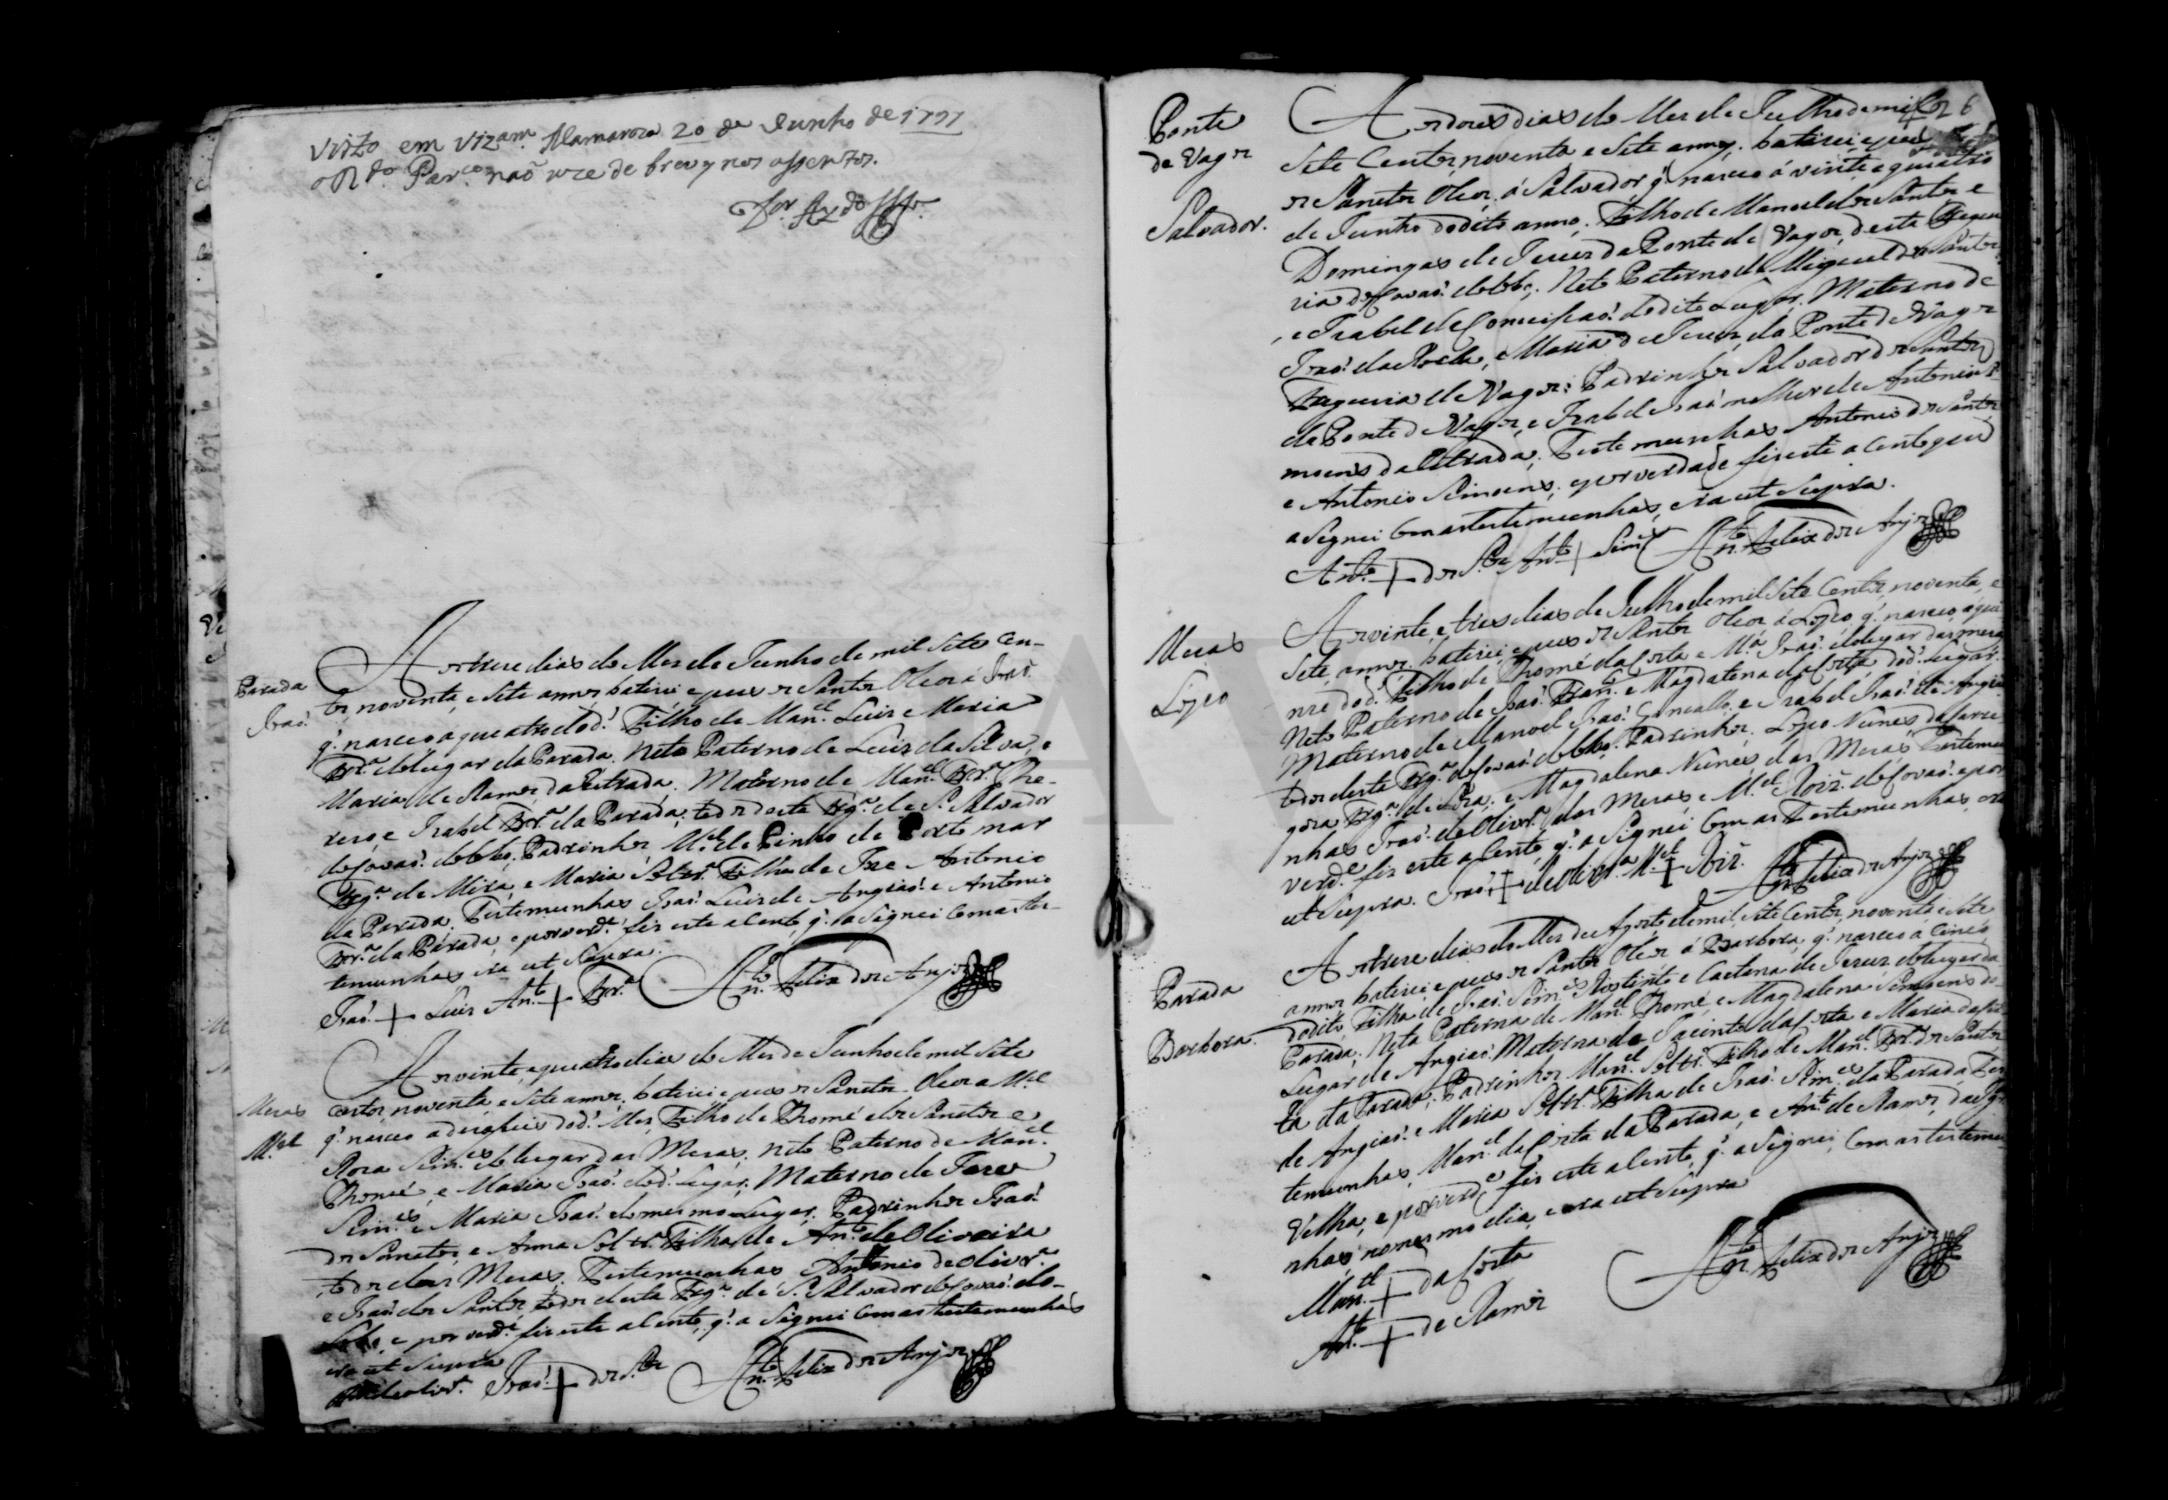 Visto em Viz.am Alamarosa 20 de Junho de 1797
o R.do Par.co naõ uze de breves nos assentos.
Parada
Joaõ
Aos treze dias do Mes de Junho de mil Sete Cen-
tos noventa, e Sete annos batizei e pus os Santos Oleos a Joaõ.
q. nasceo a quatro do d.º Filho de Man.el Luis e Maria
Frr.ª do lugar da Parada. Neto Paterno de Luis da Silva, e
Maria de Ramos da Estrada. Materno de Man.el Frr.ª The-
rezo, e Izabel Frr.ª da Parada, todos desta Frg.ª de S. Salvador
de Covaõ do Lobo, Padrinhos M.el de Pinho de Portomar
Frg.ª de Mira, e Maria Soltr.ª Filha de Antonio
da Parada. Testemunhas Joaõ Luis de Angiaõ. e Antonio
Frr.ª da Parada, e por verd.e fis este asento, q. asignei com as tes-
temunhas era ut Supra.
Joaõ + Luis Ant.º + Frr.ª Ant.º Felix dos Anjos
Mesas
M.el
Aos vinte, e quatro dias do Mes de Junho de mil Sete
centos, noventa, e Sete annos, batizei e pus os Santos Oleos a M.el
q. nasceo a dezaseis do d.º Mes, Filho de Thomé dos Santos e
Roza Sim.es do lugar das Mesas. Neto Paterno de Man.el
Thomé, e Maria Joaõ. do d.º Lugar; Materno de
Sim.es e Maria Joaõ. do mesmo Lugar. Padrinhos Joaõ
dos Santos, e Anna Soltr.ª Filha de An.to de Oliveira
todos das Mesas. Testemunhas Antonio de Olivr.ª
e Joaõ dos Santos, todos desta Frg.ª de S. Salvador de Covaõ do-
Lobo, e por verd.e fis este asento, q. asignei com as testemunhas
era ut Supra
de Olivr.ª Joaõ + dos S.tos Ant.º Felix dos Anjos
6
Ponte
de Vagos
Salvador.
Aos dous dias do Mes de Julho de mil
Sete Centos, noventa e Sete annos. batizei, e pus
os Santos Oleos, á Salvador q. nasceo á vinte e quatro
de Junho do dito anno. Filho de Manoel dos Santos e
Domingas de Jezus da Ponte de Vagos, desta Fregue
zia de Covaõ do Lobo, Neto Paterno de Miguel dos Santos
, e Izabel da Conceisaõ. do dito Lugar. Materno de
Joaõ da Rocha, e Maria de Jezus, da Ponte de Vagos
Freguezia de Vagos: Padrinhos Salvador dos Santos
da Ponte de Vagos, e Izabel Joaõ mulher de Antonio Si
moens da Estrada. Testemunhas Antonio dos Santos
e Antonio Simoens, e por verdade fis este asento que
asignei com as testemunhas, era ut Supra.
Ant.º + dos S.tos Ant.º + Sim.es Ant.º Felix dos Anjos
Mesas
Lopo
Aos vinte, e tres dias de Julho de mil Sete Centos, noventa, e
Sete, annos, batizei e pus os Santos Oleos á Lopo q. nasceo a quin
ze do d.º Filho de Thomé da Costa e M.ª Joaõ. do lugar das Mesas
Neto Paterno de Joaõ Fran.co e Magdalena da Costa, do d.º Lugar.
Materno de Manoel Joaõ Goncallo, e Izabel Joaõ de Angiaõ
todos desta Frg.ª de Covaõ do Lobo. Padrinhos. Lopo Nunes da
goza Frg.ª de e Magdalena Nunes das Mesas. Testemu
nhas Joaõ de Olivr.ª das Mesas e M.el Roiz. de Covaõ. e por
verd.e fis este asento, q. asignei com as Testemunhas, era
ut Supra. Joaõ + de Olivr.ª M.el + Roiz. Ant.º Felix dos Anjos
Parada
Barbora.
Aos treze dias do Mes de Agosto de mil Sete Centos, noventa e Sete
annos, batizei e pus os Santos Oleos á Barbora, q. nasceo a Cinco
do dito Filha de Joaõ Sim.es e Caetana de Jezus do lugar da
Parada. Neta Paterna de Man.el Thomé, e Magdalena Simoens do
Lugar de Angiaõ. Materna de Jacinto da Costa e Maria da
ta da Parada. Padrinhos Man.el Soltr.º Filho de Man.el Frr.ª dos Santos
de Angiaõ. e Maria Soltr.ª Filha de Joaõ Sim.es da Parada. Tes
temunhas Man.el da Costa da Parada, e An.to de Ramos, da
Velha, e por verd.e fis este asento, q. asignei, com as testemu
nhas, no mesmo dia, e era ut Supra
Man.el + da Costa
An.to + de Ramos
Ant.º Felix dos Anjos